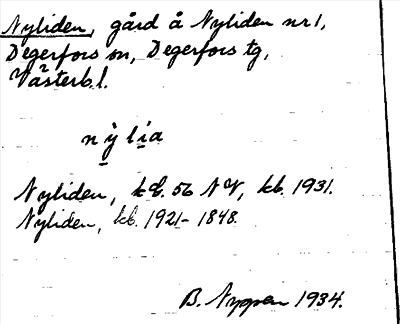 Nyliden, gård å Nyliden nr 1,
Degerfors sn, Degerfors tg,
Västerb. l.
nỳlia
Nyliden, k.bl. 56 NV, kb. 1931.
Nyliden, kb. 1921-1848.
B. Nyman 1934.